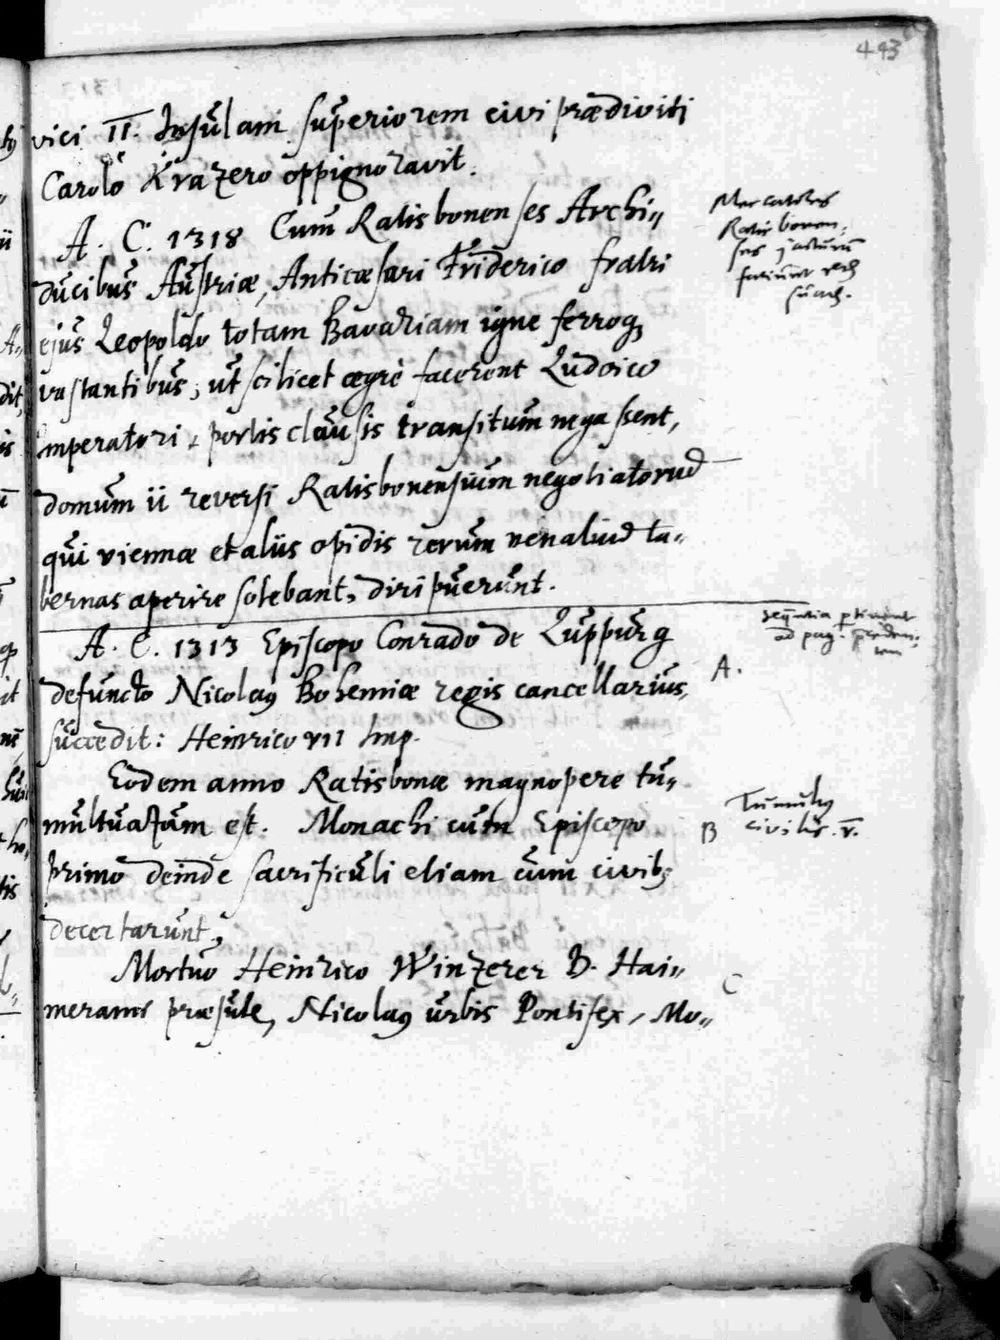 443
vici II. Insulam superiorem civi prædiviti
Carolo Krazero oppignoravit.
A. C. 1318 Cum Ratisbonenses Archi„
ducibus Austriæ, Anticæsari Friderico fratri
ejus Leopoldo totam Bavariam igne ferroq
vastantibus, ut scilicet ægrè facerent Ludoico
Imperatori, portis clausis transitum negassent,
domum ii reversi Ratisbonensium negotiatorum
qui viennæ et aliis opidis rerum venalium ta„
bernas aperire solebant, diripuerunt.
Mercatores
Ratisbonen:
ses jacturam
faciunt
A. C. 1313 Episcopo Conrado de Luppurg
defuncto Nicolaus Bohemiæ regis cancellarius,
succedit: Heinrico VII Imp.
sequentia pertinent
ad pag.
A.
Eodem anno Ratisbonæ magnopere tu„
multuatum est. Monachi cum Episcopo
primo deinde sacrificuli etiam cum civib;
decertarunt,
B Tumultus
civilis. V.
Mortuo Heinrico Winzerer D. Hai„
merami præsule, Nicolaus urbis Pontifex, Mo„
C